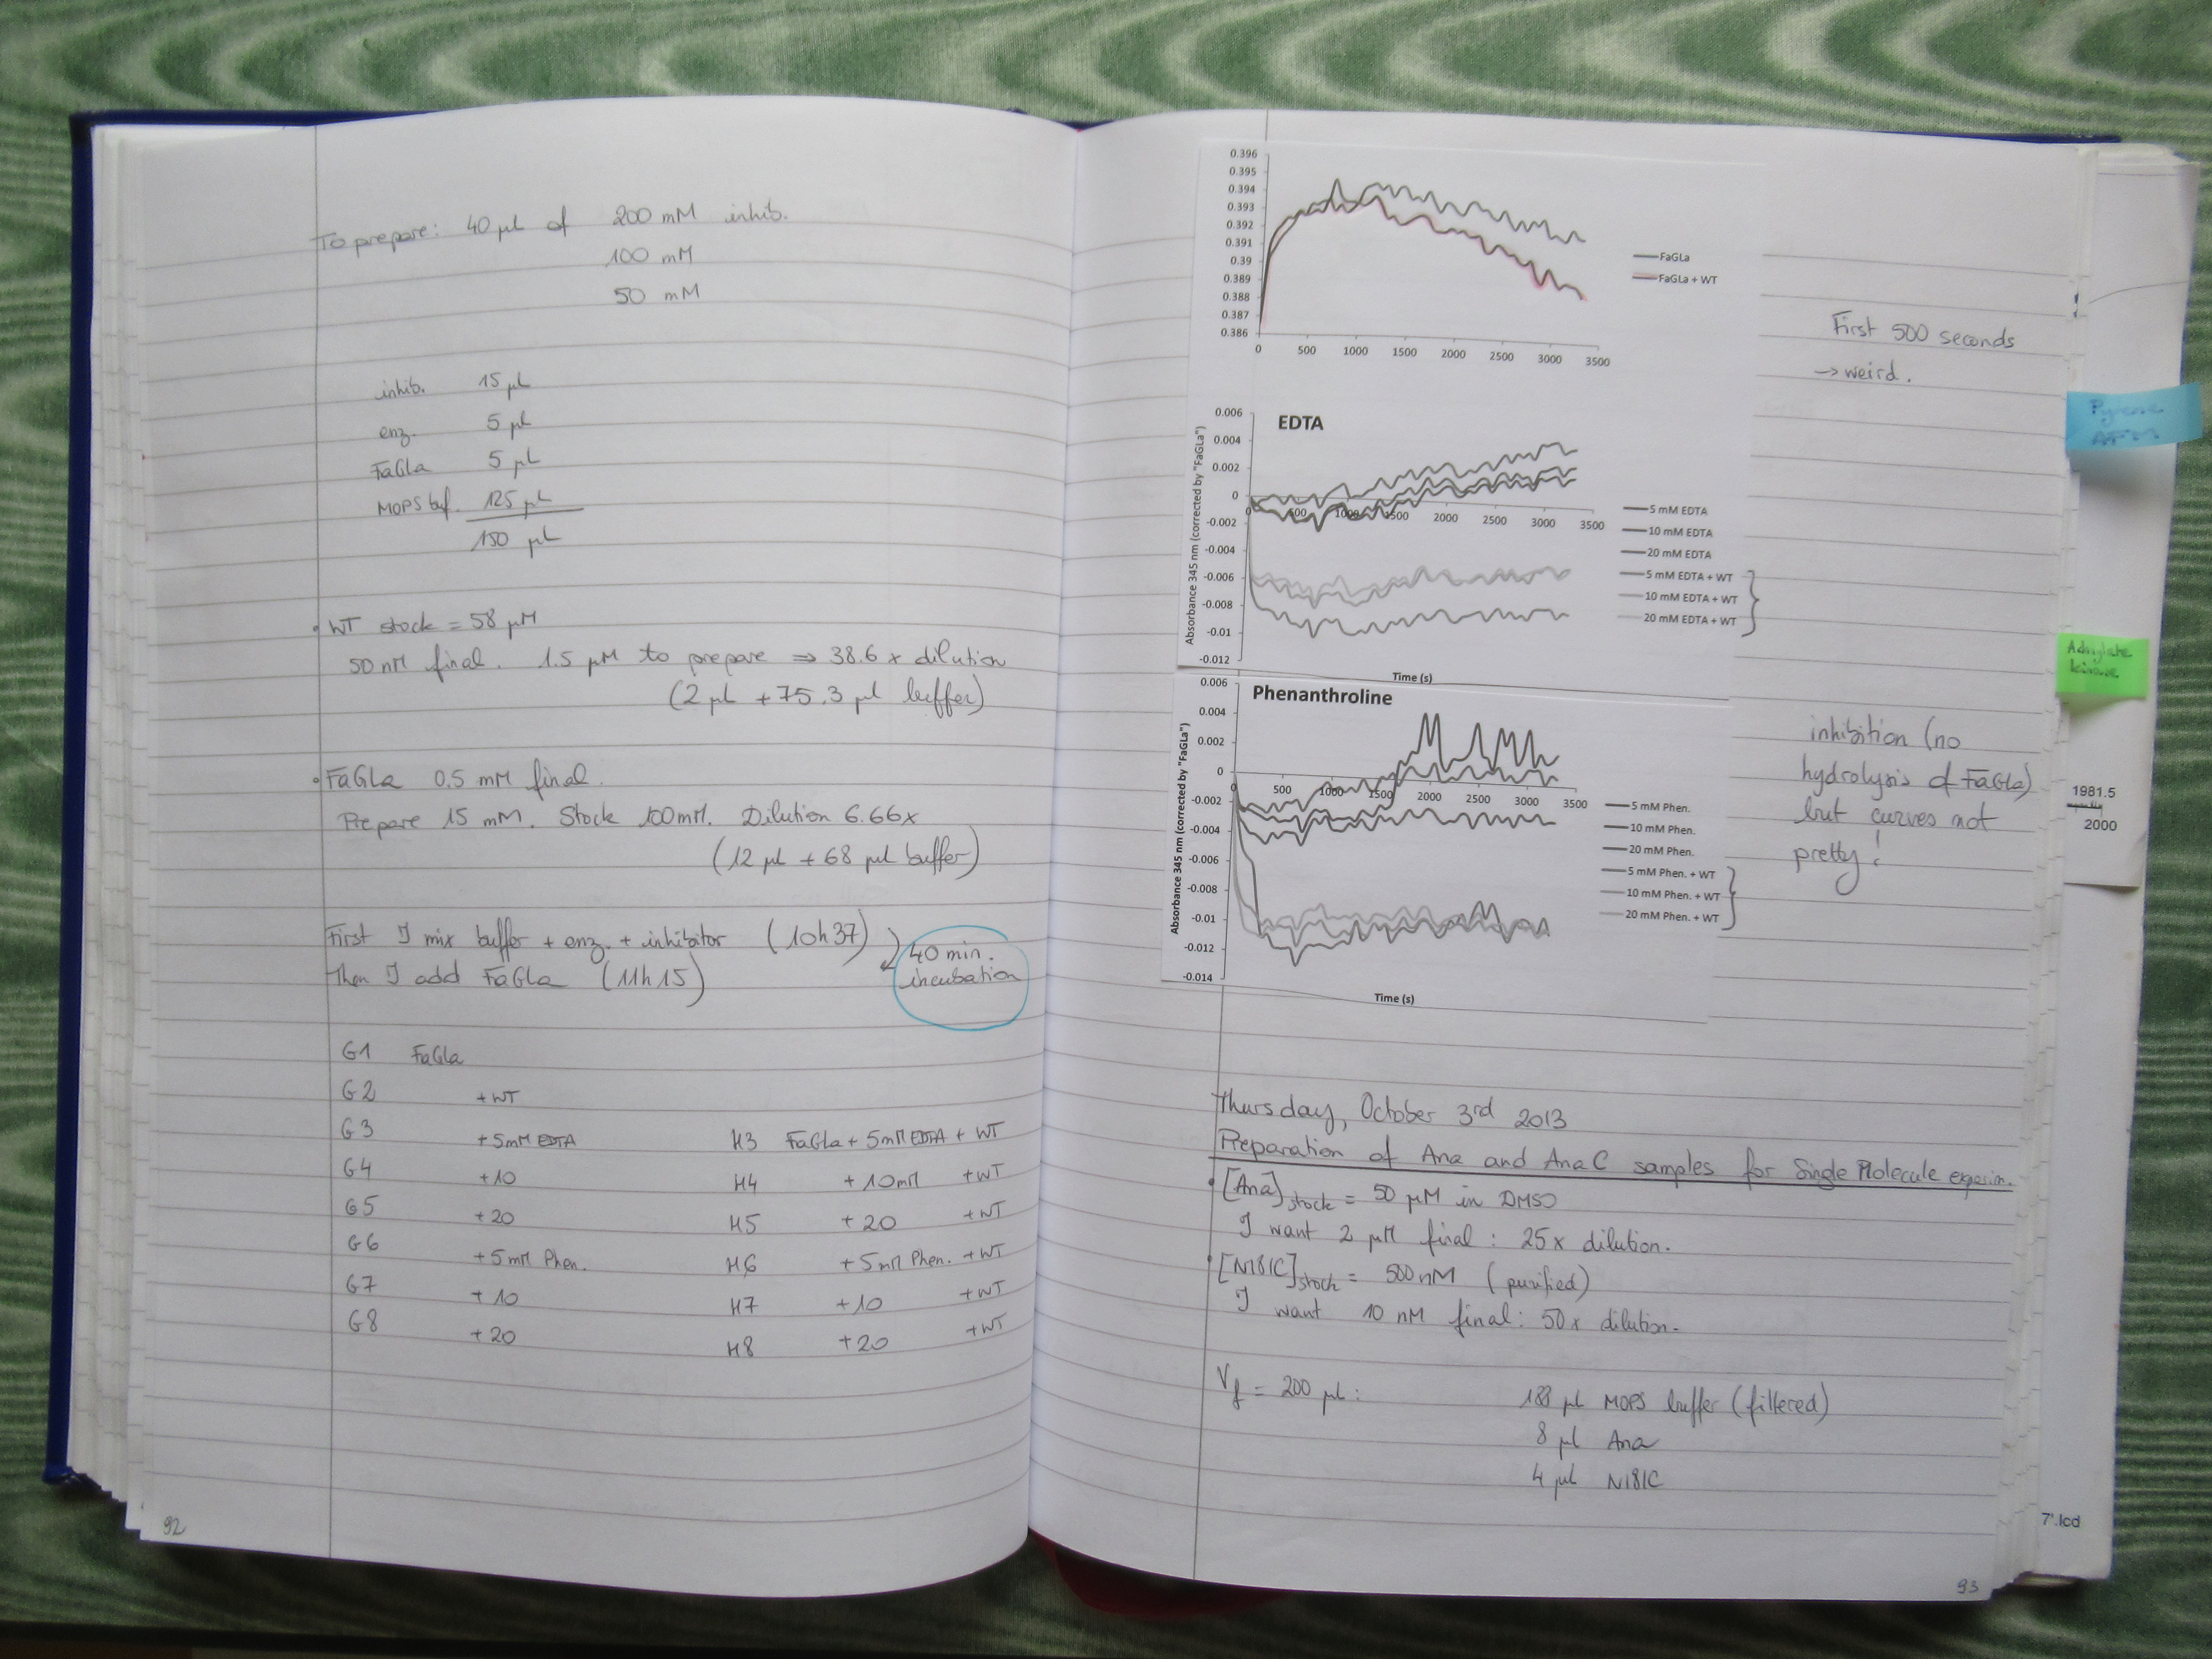 To prepare: 40 µl of 200 mM inhib.
100 mM
50 mM
inhib. 15 µl
enz. 5 µl
FaGla 5 µl
MOPS buf. 125 µl
150 µl
• WT stock = 58 µM
50 nM final. 1.5 µM to prepare ⇒ 38.6 x dilution
(2 µl + 75.3 µl buffer)
• FaGla 0.5 mM final.
Prepare 15 mM. Stock 100mM. Dilution 6.66x
(12 µl + 68 µl buffer)
First I mix buffer + enz. + inhibitor (10h37)
Then I add FaGla (11h15)
40 min.
incubation
G1 FaGla
G2 + WT
G3 + 5mM EDTA H3 FaGla + 5mM EDTA + WT
G4 + 10 H4 + 10mM + WT
G5 + 20 H5 + 20 + WT
G6 + 5mM Phen. H6 + 5mM Phen. + WT
G7 + 10 H7 + 10 + WT
G8 + 20 H8 + 20 + WT
92
0.396
0.395
0.394
0.393
0.392
0.391
0.39
0.389
0.388
0.387
0.386
0 500 1000 1500 2000 2500 3000 3500
FaGLa
FaGLa + WT
First 500 seconds
→ weird.
EDTA
Absorbance 345 nm (corrected by "FaGLa")
0.006
0.004
0.002
0
-0.002
-0.004
-0.006
-0.008
-0.01
-0.012
0 500 1000 1500 2000 2500 3000 3500
5 mM EDTA
10 mM EDTA
20 mM EDTA
5 mM EDTA + WT
10 mM EDTA + WT
20 mM EDTA + WT
Time (s)
Phenanthroline
Absorbance 345 nm (corrected by "FaGLa")
0.006
0.004
0.002
0
-0.002
-0.004
-0.006
-0.008
-0.01
-0.012
-0.014
0 500 1000 1500 2000 2500 3000 3500
5 mM Phen.
10 mM Phen.
20 mM Phen.
5 mM Phen. + WT
10 mM Phen. + WT
20 mM Phen. + WT
Time (s)
inhibition (no
hydrolysis of FaGla)
but curves not
pretty!
Thursday, October 3rd 2013
Preparation of Ana and AnaC samples for Single Molecule experim.
• [Ana]stock = 50 µM in DMSO
I want 2 µM final : 25x dilution.
• [N181C]stock = 500 nM (purified)
I want 10 nM final: 50x dilution.
Vf = 200 µl : 188 µl MOPS buffer (filtered)
8 µl Ana
4 µl N181C
93
Pyrene
AFM
Adenylate
kinase
1981.5
2000
7'.lcd